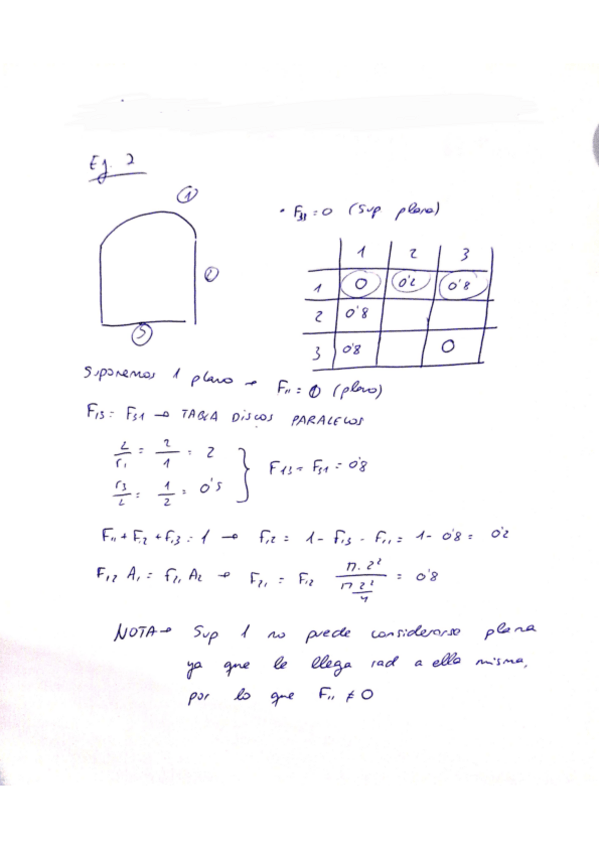 Ej. 2
①
• F₃₁ = 0 (Sup plana)
②
③
1 2 3
1 0 0'2 0'8
2 0'8
3 0'8 0
Suponemos 1 plano → F₁₁ = 0 (plano)
F₁₃ = F₃₁ → TABLA DISCOS PARALELOS
L/r₁ = 2/1 = 2
r₃/L = 1/2 = 0'5
F₁₃ = F₃₁ = 0'8
F₁₁ + F₁₂ + F₁₃ = 1 → F₁₂ = 1 - F₁₃ - F₁₁ = 1 - 0'8 = 0'2
F₁₂ A₁ = F₂₁ A₂ → F₂₁ = F₁₂ (π · 2²)/(π 2²/4) = 0'8
NOTA → Sup 1 no puede considerarse plana
ya que le llega rad a ella misma,
por lo que F₁₁ ≠ 0